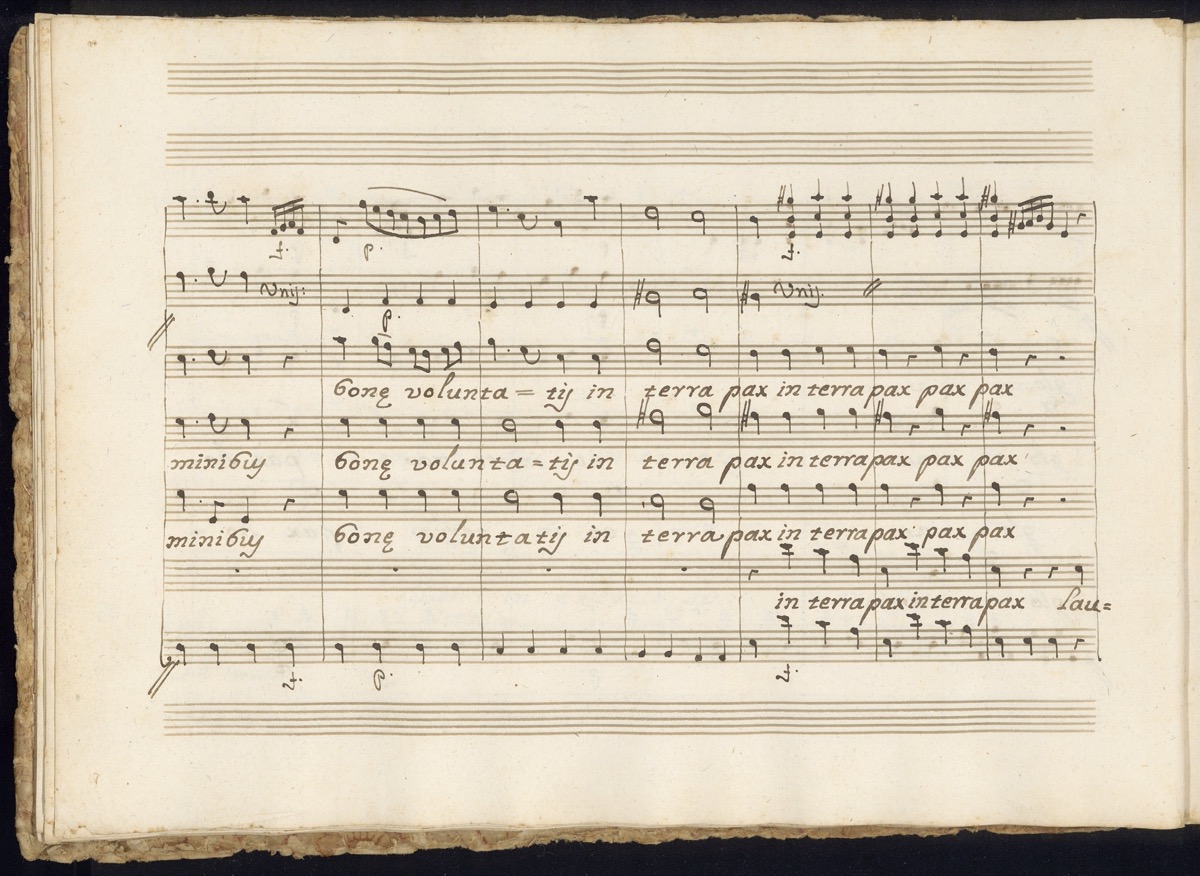 4. p. 4.
Unij: p. Unij.
bonę volunta = tij in terra pax in terra pax pax pax
minibuj bonę volunta = tij in terra pax in terra pax pax pax
minibuj bonę voluntatij in terra pax in terra pax pax pax
in terra pax in terra pax lau=
4. p. 4.